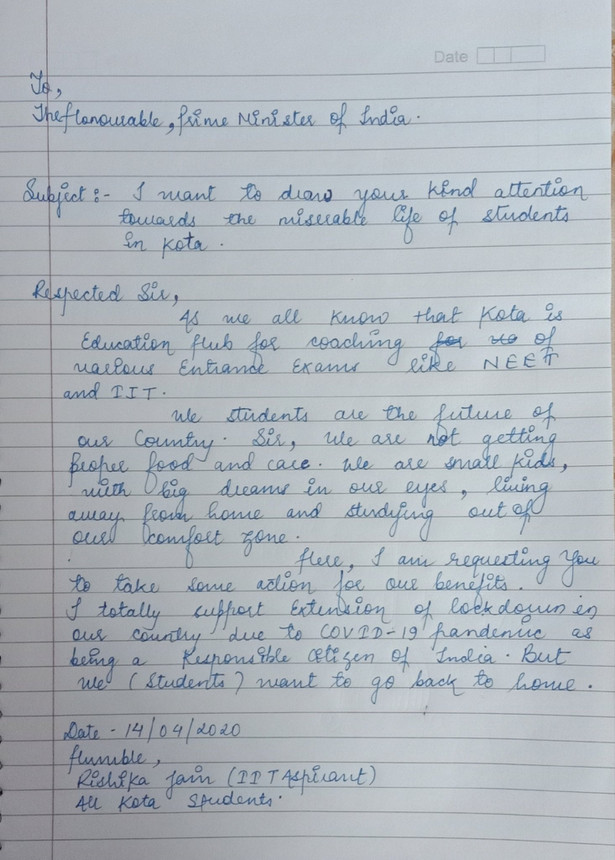 Date
To,
The Honourable, Prime Minister of India.
Subject:- I want to draw your kind attention
towards the miserable life of students
in Kota.
Respected Sir,
As we all know that Kota is
Education Hub for coaching of
various Entrance Exams like NEET
and IIT.
We students are the future of
our Country. Sir, We are not getting
proper food and care. We are small kids,
with big dreams in our eyes, living
away from home and studying out of
our comfort zone.
Here, I am requesting You
to take some action for our benefits.
I totally support Extension of lockdown in
our country due to COVID-19 pandemic as
being a Responsible citizen of India. But
we (students) want to go back to home.
Date - 14/04/2020
Humble,
Rishika Jain (IIT Aspirant)
All Kota Students.